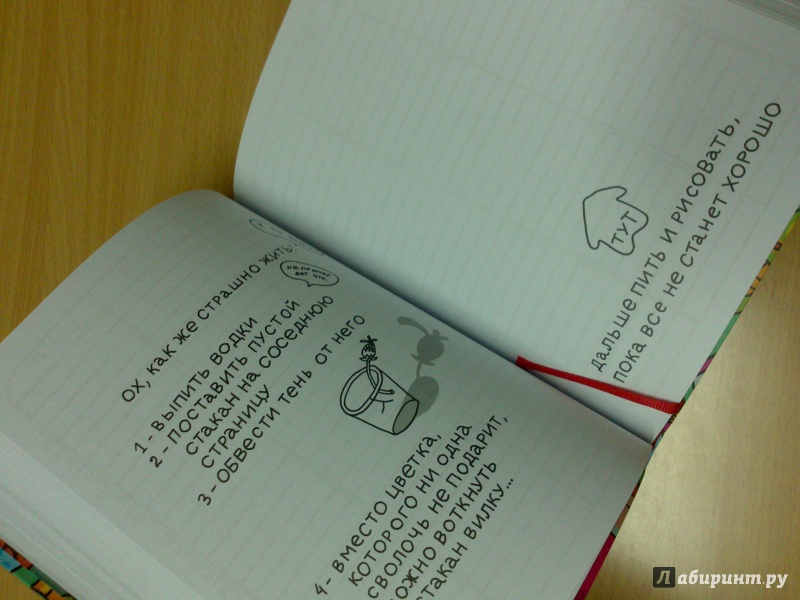 ОХ, КАК ЖЕ СТРАШНО ЖИТЬ!
1- ВЫПИТЬ ВОДКИ
2- ПОСТАВИТЬ ПУСТОЙ
СТАКАН НА СОСЕДНЮЮ
СТРАНИЦУ
3- ОБВЕСТИ ТЕНЬ ОТ НЕГО
4- ВМЕСТО ЦВЕТКА,
КОТОРОГО НИ ОДНА
СВОЛОЧЬ НЕ ПОДАРИТ,
МОЖНО ВОТКНУТЬ
СТАКАН ВИЛКУ...
ТУТ
ДАЛЬШЕ ПИТЬ И РИСОВАТЬ,
ПОКА ВСЕ НЕ СТАНЕТ ХОРОШО
Лабиринт.ру